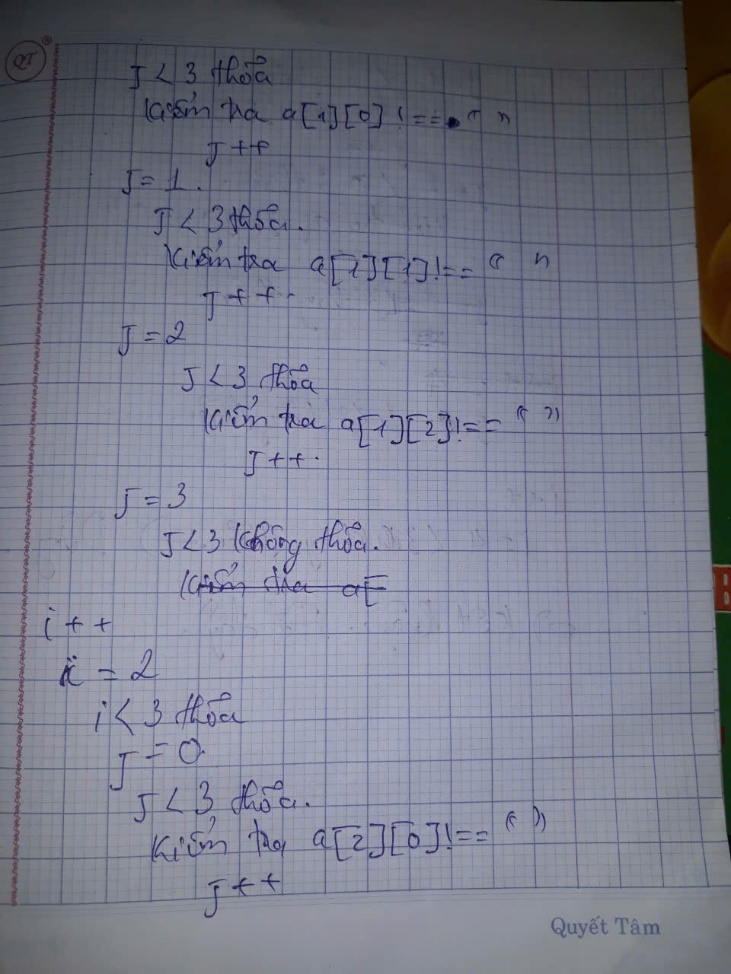 QT
J < 3 thỏa
Kiểm tra a[1][0] !== " "
J++
J = 1.
J < 3 thỏa.
Kiểm tra a[1][1] !== " "
J++.
J = 2
J < 3 thỏa
Kiểm tra a[1][2] !== " "
J++.
J = 3
J < 3 không thỏa.
Kiểm tra a[
i++
i = 2
i < 3 thỏa
J = 0.
J < 3 thỏa.
Kiểm tra a[2][0] !== " "
J++
Quyết Tâm